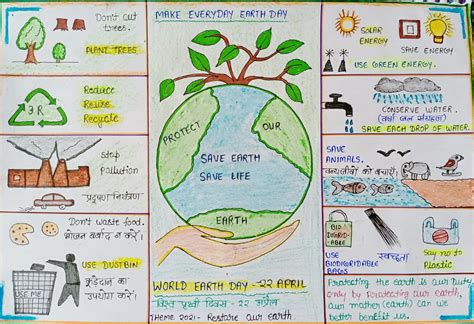 Don't cut
trees.
PLANT TREES
3 R
Reduce
Reuse
Recycle
Stop
Pollution
प्रदूषण नियंत्रण
Don't waste food.
भोजन बर्बाद न करें।
USE DUSTBIN
कूड़ेदान का
उपयोग करें।
USE ME
MAKE EVERYDAY EARTH DAY
PROTECT OUR
SAVE EARTH
SAVE LIFE
EARTH
WORLD EARTH DAY - 22 APRIL
विश्व पृथ्वी दिवस - 22 अप्रैल
THEME 2021- Restore our earth.
SOLAR
ENERGY
SAVE ENERGY
USE GREEN ENERGY.
CONSERVE WATER.
(वर्षा जल संग्रहण)
SAVE EACH DROP OF WATER.
SAVE
ANIMALS.
वन्यजीवों को बचाएँ।
BIO
DEGRAD-
ABLE
USE
BIODEGRADABLE
BAGS
स्वच्छता
Say no to
Plastic
Protecting the earth is our duty
only by protecting our earth,
our mother (earth) can we
better benefit us.